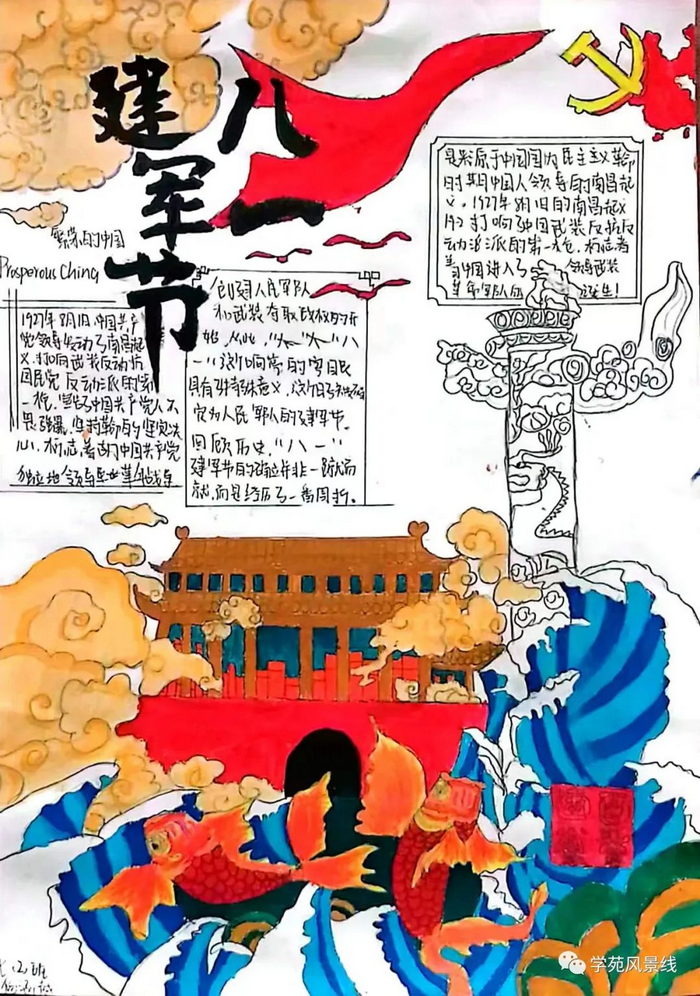 八一
建军节
繁荣的中国
Prosperous China
1927年8月1日,中国共产
党领导发动了南昌起
义,打响武装反抗
国民党反动派的第
一枪,
中国共产党人不
坚持革命的坚定决
心,标志着中国共产党
独立地领导
革命战争
创建人民军队
和武装夺取政权的开
始,从此,
"八
一"这个响亮的字眼
具有特殊意义,这个日子被
定为人民军队的建军节。
回顾历史,"八一"
建军节的确立并非一蹴而
就,而是经历了一番周折。
是来原于中国国内民主义革命
时期中国人领导的南昌起
义。1927年8月1日的南昌起义
打响
武装反抗反
动派的第一枪,标志着
中国进入了
领导武装
革命军队的
诞生!
学苑风景线